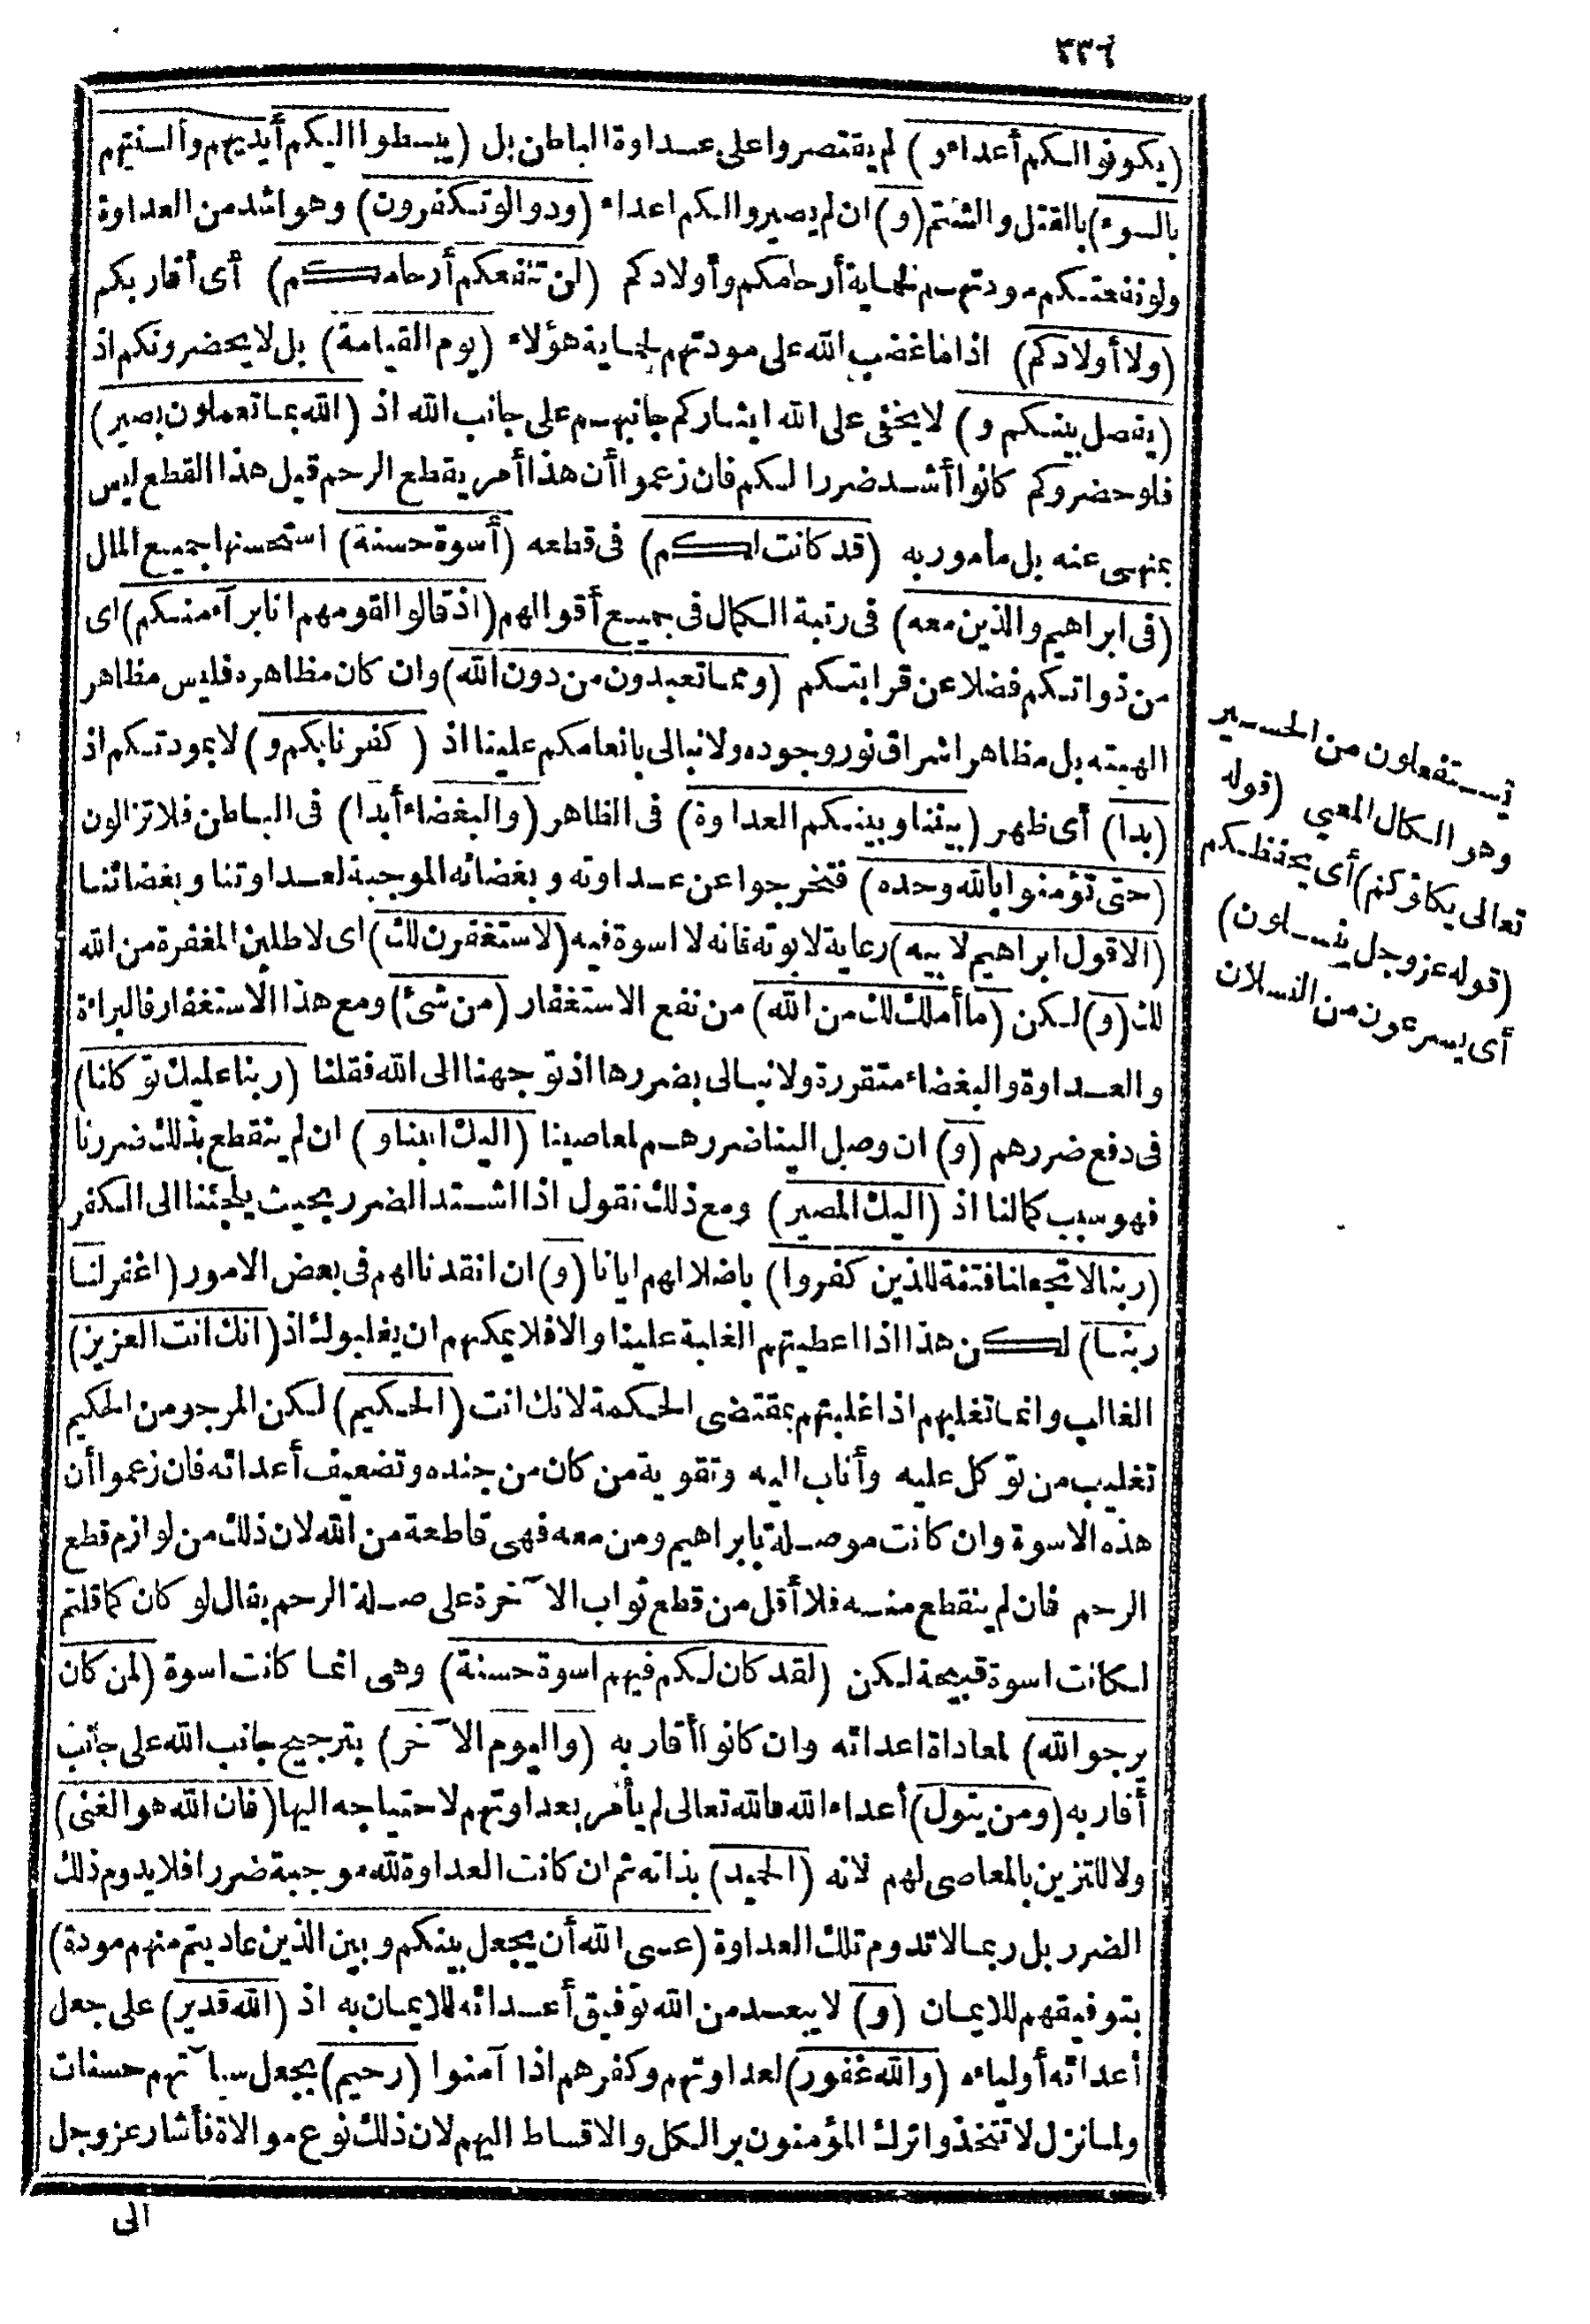 ٣٣٦
(يكونوا لكم أعداء و) لم يقتصروا على عداوة الباطن بل (يبسطوا اليكم أيديهم وألسنتهم
بالسوء) بالقتل والشتم (و) ان لم يصيروا لكم اعداء (ودوا لو تكفرون) وهو اشد من العداوة
ولو نفعتكم مودتهم لحماية أرحامكم وأولادكم (لن تنفعكم أرحامكم) أى أقاربكم
(ولا أولادكم) اذا ما غضب الله على مودتهم لحماية هؤلاء (يوم القيامة) بل لا يحضرونكم اذ
(يفصل بينكم و) لا يخفى على الله ايثاركم جانبهم على جانب الله اذ (الله بما تعملون بصير)
فلو حضروكم كانوا أشد ضررا لكم فان زعموا أن هذا أمر يقطع الرحم قيل هذا القطع ليس
بمنهى عنه بل مأمور به (قد كانت لكم) فى قطعه (أسوة حسنة) استحسنها جميع الملل
(فى ابراهيم والذين معه) فى رتبة الكمال فى جميع أقوالهم (اذ قالوا لقومهم انا برآء منكم) اى
من ذواتكم فضلا عن قرابتكم (ومما تعبدون من دون الله) وان كان مظاهره فليس مظاهر
الهيته بل مظاهر اشراق نور وجوده ولا نبالى بانعامكم علينا اذ (كفرنا بكم و) لا بمودتكم اذ
(بدا) أى ظهر (بيننا وبينكم العداوة) فى الظاهر (والبغضاء أبدا) فى الباطن فلا تزالون
(حتى تؤمنوا بالله وحده) فتخرجوا عن عداوته وبغضائه الموجبة لعداوتنا وبغضائنا
(الا قول ابراهيم لابيه) رعاية لابوته فانه لا اسوة فيه (لاستغفرن لك) اى لاطلبن المغفرة من الله
لك (و) لكن (ما أملك لك من الله) من نفع الاستغفار (من شئ) ومع هذا الاستغفار فالبراءة
والعداوة والبغضاء متقررة ولا نبالى بضررها اذ توجهنا الى الله فقلنا (ربنا عليك توكلنا)
فى دفع ضررهم (و) ان وصل الينا ضررهم لمعاصينا (اليك انبنا و) ان لم ينقطع بذلك ضررنا
فهو سبب كمالنا اذ (اليك المصير) ومع ذلك نقول اذا اشتد الضرر بحيث يلجئنا الى الكفر
(ربنا لا تجعلنا فتنة للذين كفروا) باضلالهم ايانا (و) ان انقدنا لهم فى بعض الامور (اغفر لنا
ربنا) لكن هذا اذا اعطيتهم الغلبة علينا والا فلا يمكنهم ان يغلبوك اذ (انك انت العزيز)
الغالب وانما تغلبهم اذا غلبتهم بمقتضى الحكمة لانك انت (الحكيم) لكن المرجو من الحكيم
تغليب من توكل عليه وأناب اليه وتقوية من كان من جنده وتضعيف أعدائه فان زعموا أن
هذه الاسوة وان كانت موصلة بابراهيم ومن معه فهى قاطعة من الله لان ذلك من لوازم قطع
الرحم فان لم ينقطع منه فلا أقل من قطع ثواب الآخرة على صلة الرحم يقال لو كان كما قلتم
لكانت اسوة قبيحة لكن (لقد كان لكم فيهم اسوة حسنة) وهى انما كانت اسوة (لمن كان
يرجو الله) لمعاداة اعدائه وان كانوا أقاربه (واليوم الآخر) بترجيح جانب الله على جانب
أقاربه (ومن يتول) أعداء الله فالله تعالى لم يأمر بعداوتهم لاحتياجه اليها (فان الله هو الغنى)
ولا للتزين بالمعاصى لهم لانه (الحميد) بذاته ثم ان كانت العداوة لله موجبة ضررا فلا يدوم ذلك
الضرر بل ربما لا تدوم تلك العداوة (عسى الله أن يجعل بينكم وبين الذين عاديتم منهم مودة)
بتوفيقهم للايمان (و) لا يبعد من الله توفيق أعدائه للايمان به اذ (الله قدير) على جعل
أعدائه أولياءه (والله غفور) لعداوتهم وكفرهم اذا آمنوا (رحيم) يجعل سيآتهم حسنات
ولما نزل لا تتخذوا ترك المؤمنون بر الكل والاقساط اليهم لان ذلك نوع موالاة فأشار عز وجل
الى
تستفعلون من الحسير
وهو الكال المعيى (قوله
تعالى يكلؤكم) أى يحفظكم
(قوله عز وجل ينسلون)
أى يسرعون من النسلان